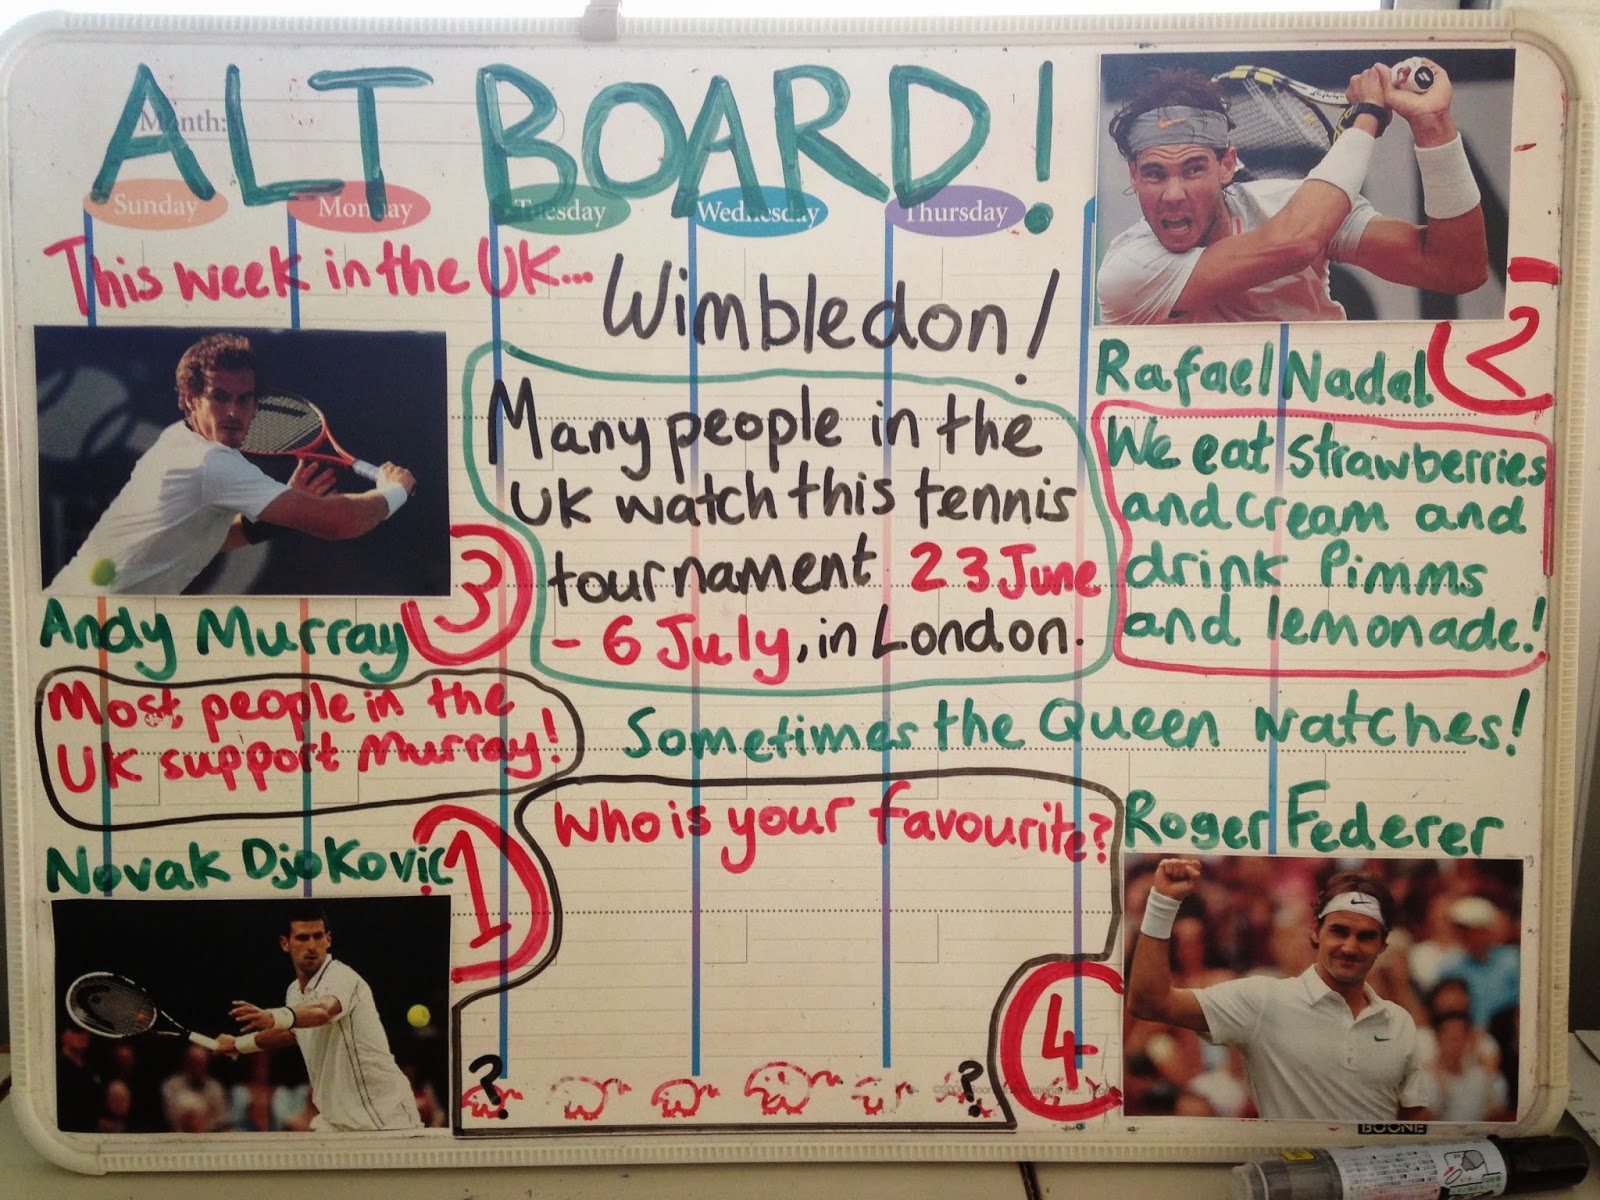 ALT BOARD!
Month:
Sunday
Monday
Tuesday
Wednesday
Thursday
This week in the UK...
Wimbledon!
Many people in the
UK watch this tennis
tournament 23 June
- 6 July, in London.
Rafael Nadal
2
We eat strawberries
and cream and
drink Pimms
and lemonade!
Andy Murray
3
Most people in the
UK support Murray!
Sometimes the Queen watches!
Novak Djokovic
1
Who is your favourite?
Roger Federer
4
?
?
BOONE